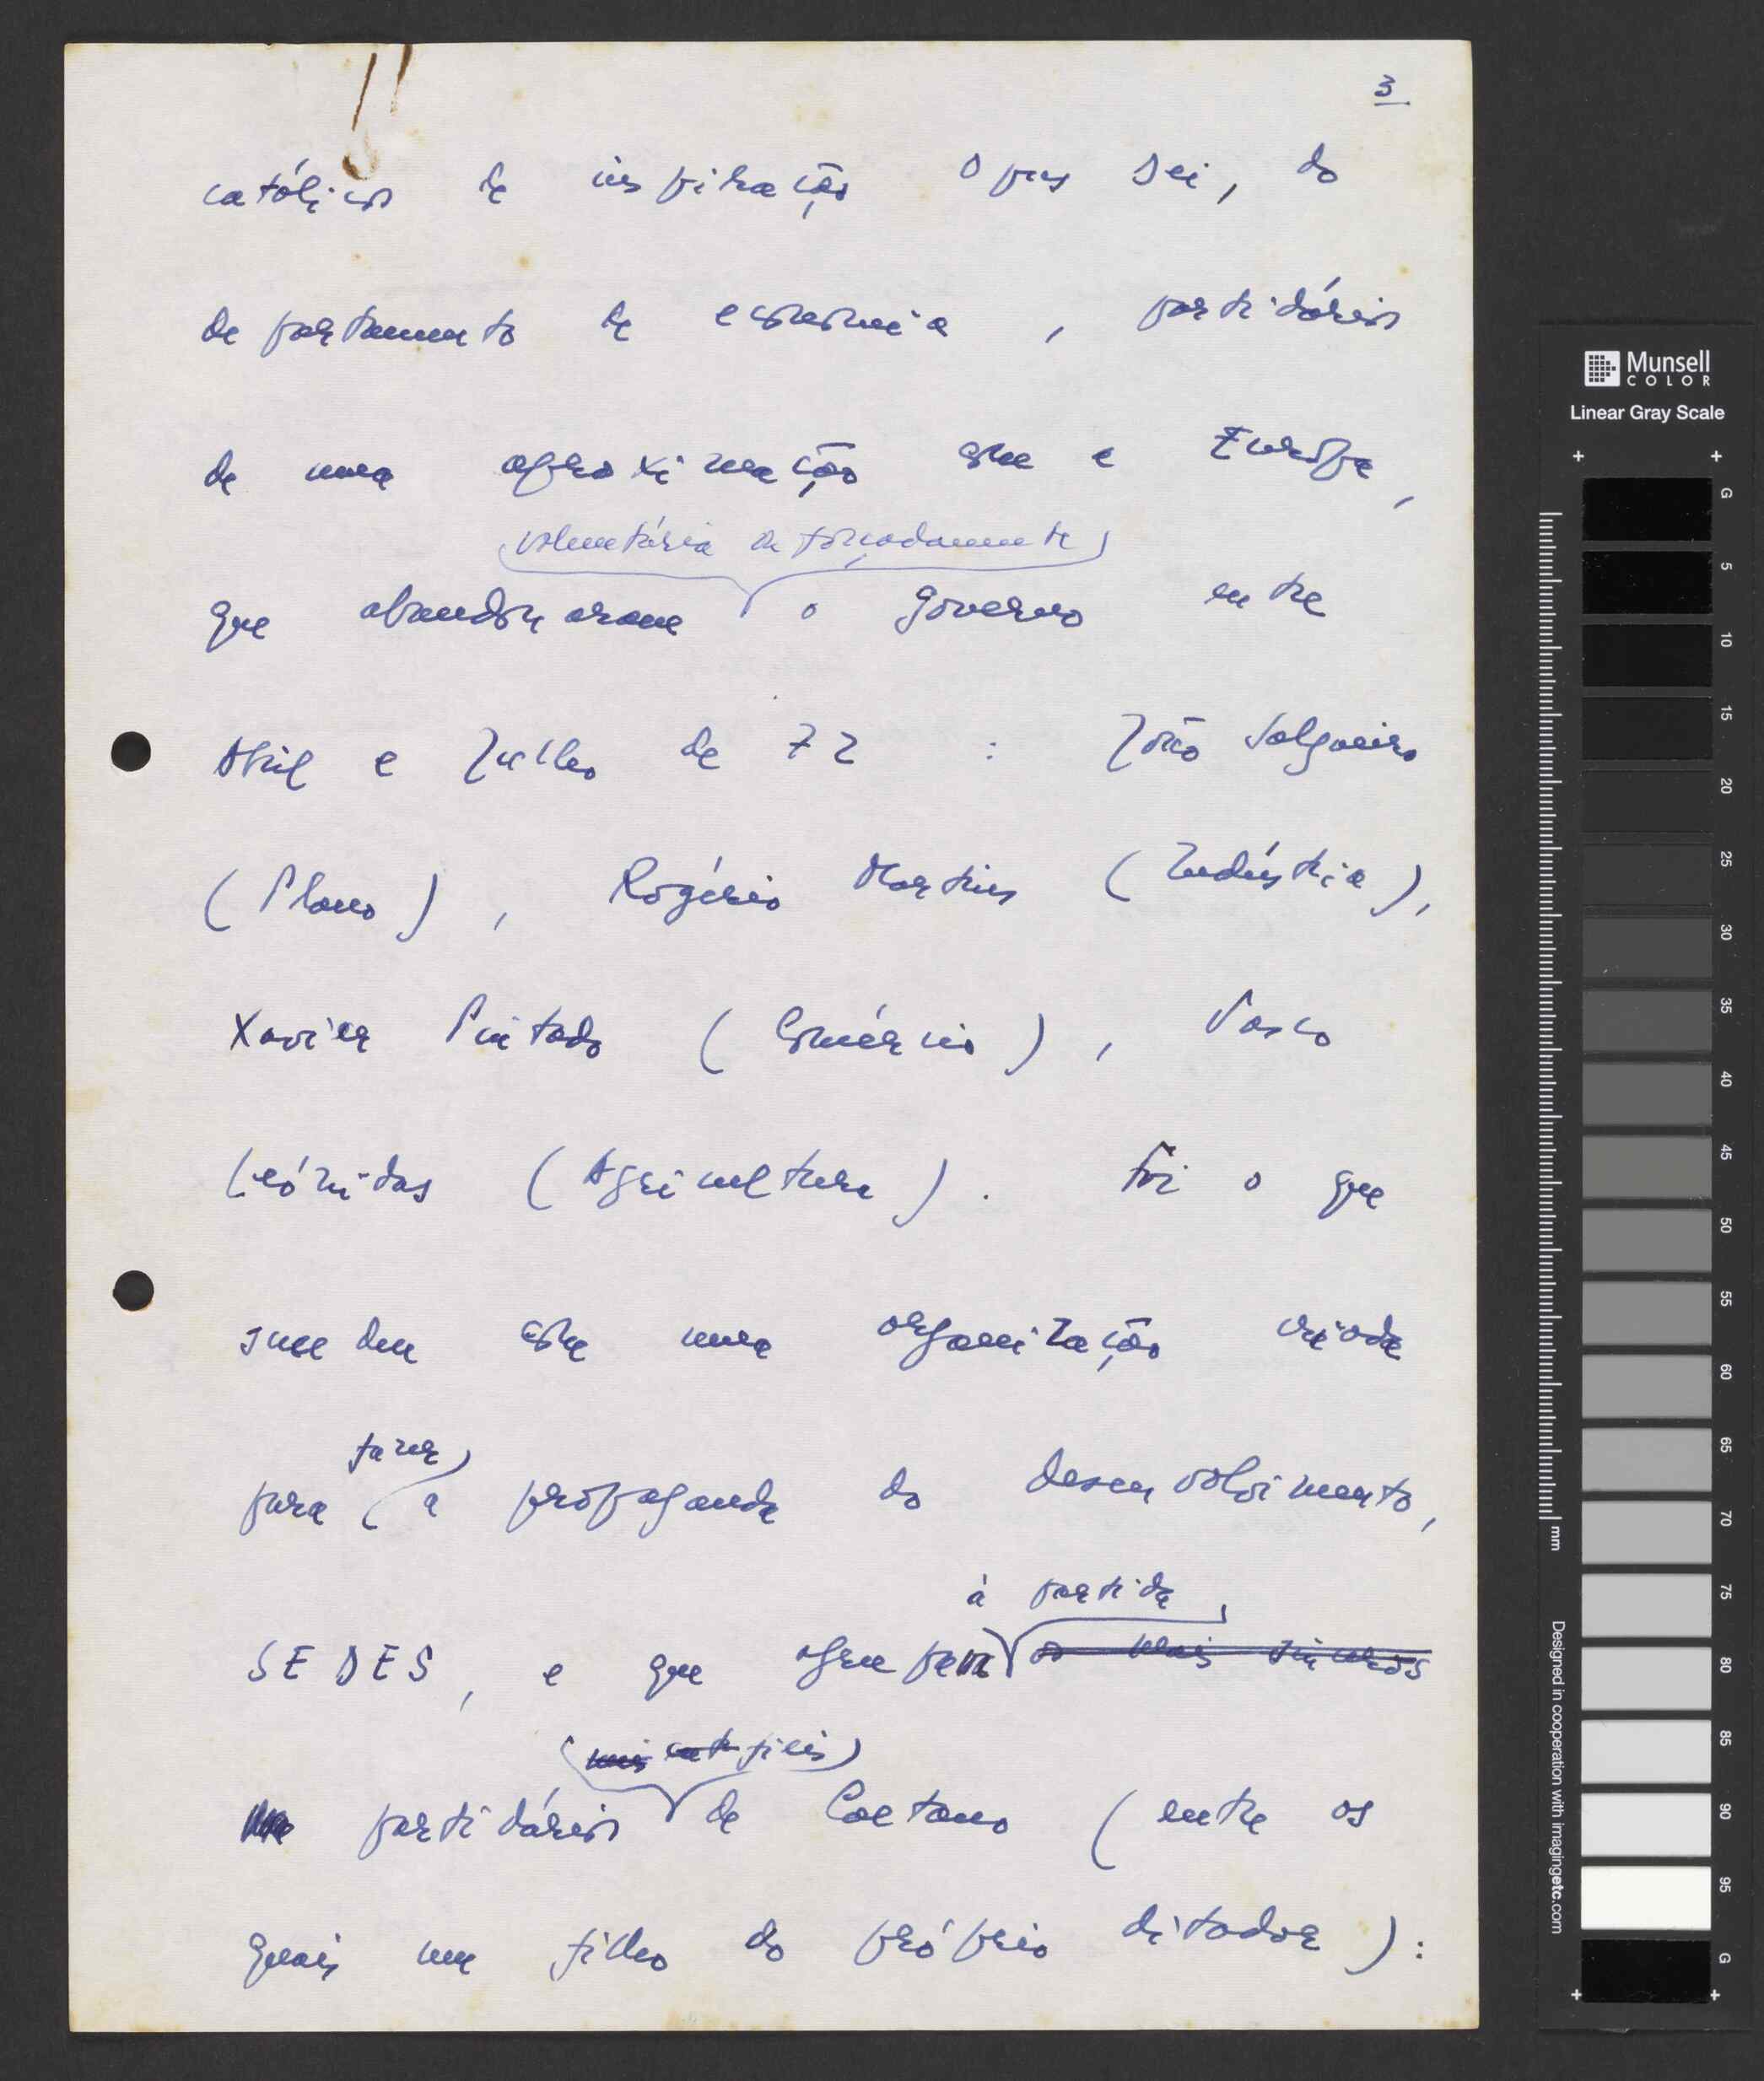 3
católicos de inspiração Opus Dei, do
departamento de economia, partidários
de uma aproximação com a Europa,
voluntária ou forçadamente
que abandonaram o governo entre
Abril e Julho de 72 : João Salgueiro
(Plano), Rogério Martins (Indústria),
Xavier Pintado (Comércio), Vasco
Leónidas (Agricultura). Foi o que
sucedeu com uma organização criada
fazer
para a propaganda do desenvolvimento,
à partida
SEDES, e que agrupava os mais sinceros
mais fiéis
partidários de Caetano (entre os
quais um filho do próprio ditador):
Munsell
COLOR
Linear Gray Scale
G
5
10
15
20
25
30
35
40
45
50
55
60
65
70
75
80
85
90
95
G
mm
Designed in cooperation with imagingetc.com